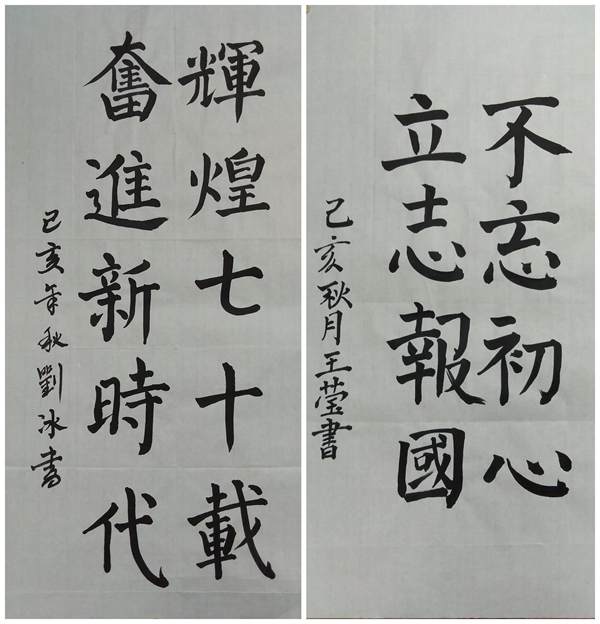 輝煌七十載
奮進新時代
己亥年秋劉冰書
不忘初心
立志報國
己亥秋月王莹書